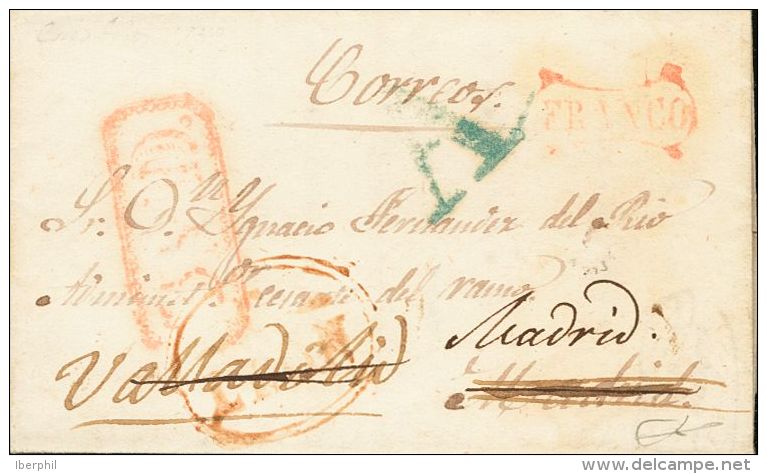 Correos.
FRANCO
Sr. D.n Ygnacio Fernandez del Rio
Administ.or cesante del ramo
Madrid.
Valladolid
Madrid.
Iberphil
delcampe.net